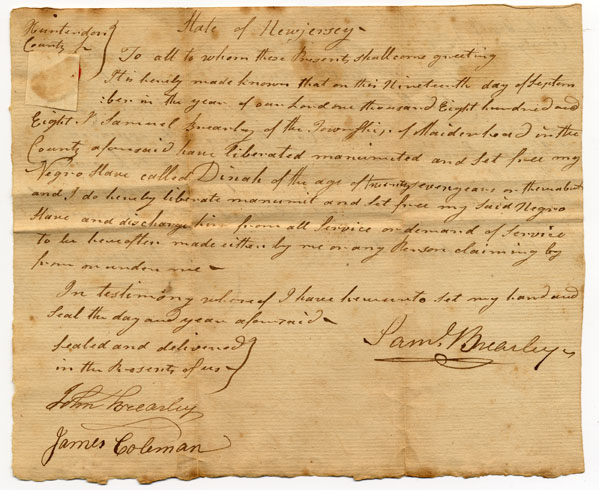 Hunterdon
County Ss
State of New jersey
To all to whom these Presents shall come greeting
It is hereby made known that on this Nineteenth day of Septem
ber in the year of our Lord one thousand Eight hundred and
Eight I Samuel Brearley of the Township of Maidenhead in the
County aforesaid have liberated manumited and set free my
Negro Slave called Dinah of the age of twenty seven years or thereabout
and I do hereby liberate manumit and set free my said Negro
Slave and discharge him from all Service or demand of Service
to be hereafter made either by me or any Person claiming by
from or under me
In testimony whereof I have hereunto set my hand and
seal the day and year aforesaid
Sealed and delivered
in the Presents of us
Saml. Brearley
John Brearley
James Coleman